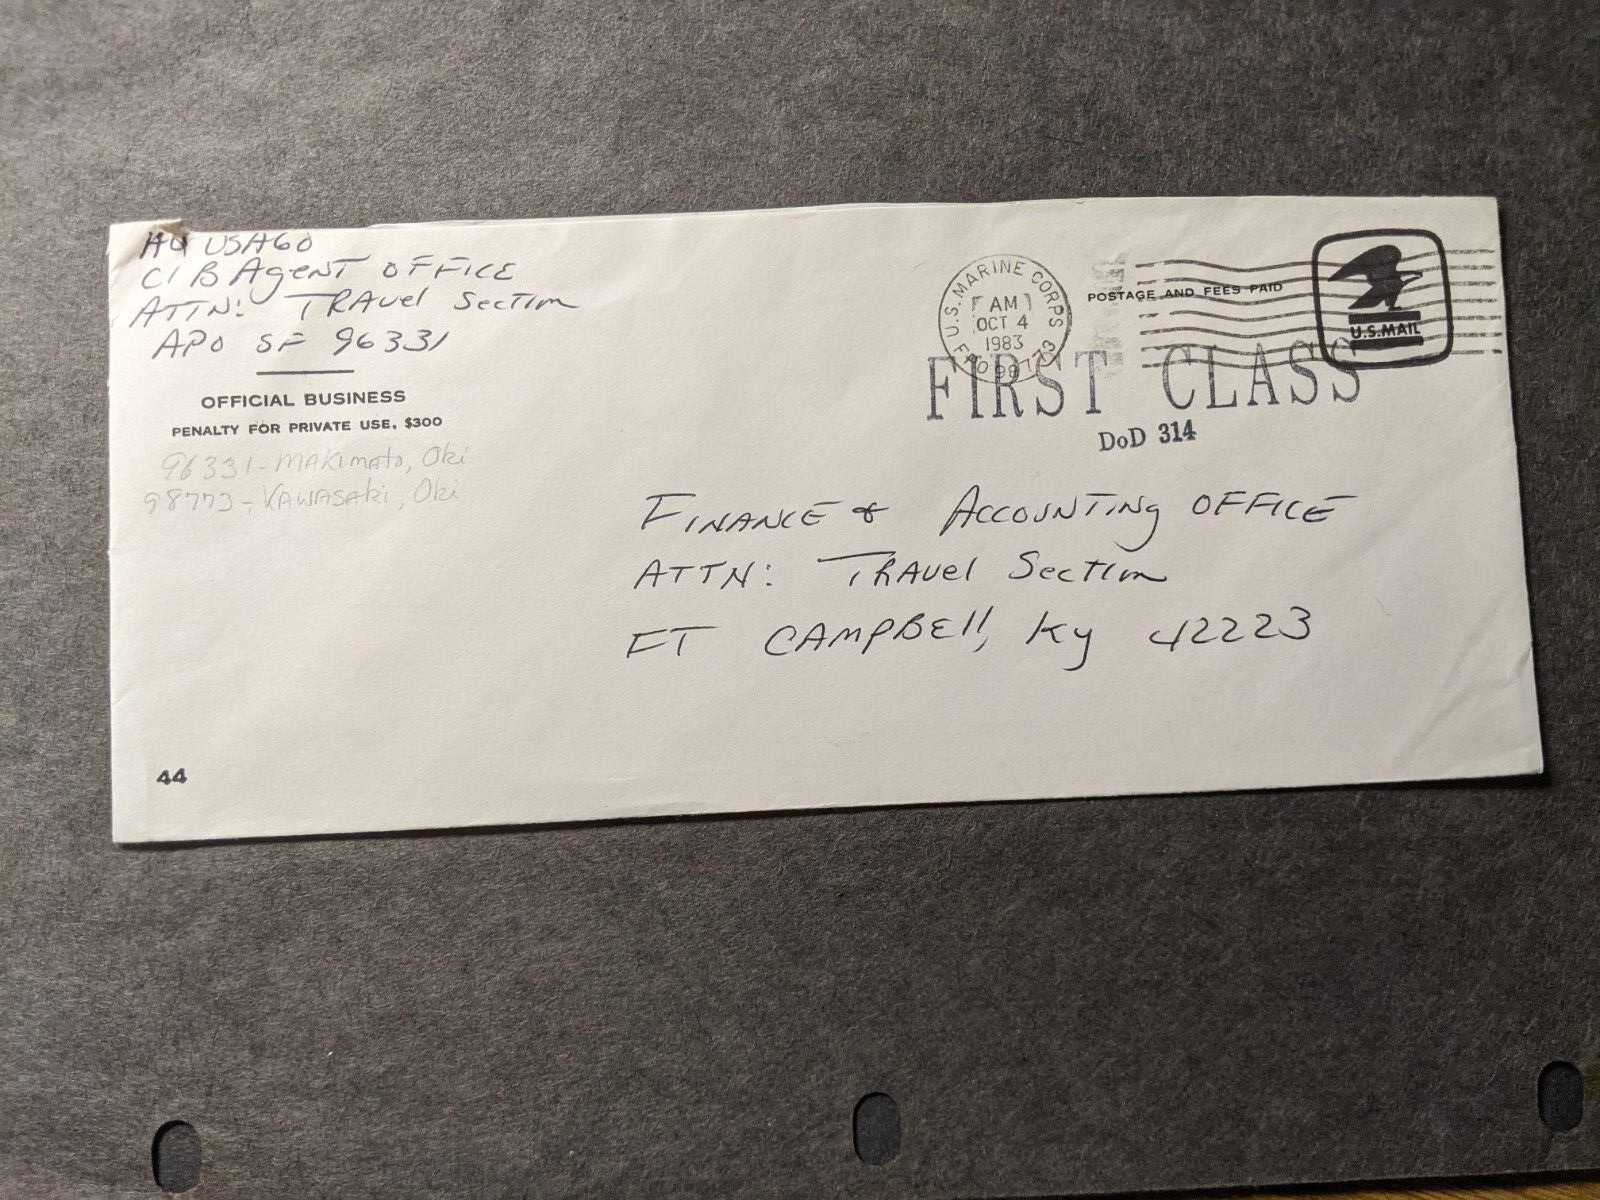 HQ USAGO
CIB Agent OFFICE
ATTN: TRAvel Section
APO SF 96331
OFFICIAL BUSINESS
PENALTY FOR PRIVATE USE, $300
96331-MAKiMato, Oki
98773-KAWASAki, Oki
U.S. MARINE CORPS
AM
OCT 4
1983
FPO 98773
POSTAGE AND FEES PAID
U.S.MAIL
FIRST CLASS
DoD 314
FINANCE & ACCOUNTing OFFICE
ATTN: TRAvel Section
FT CAMPBEll, Ky 42223
44